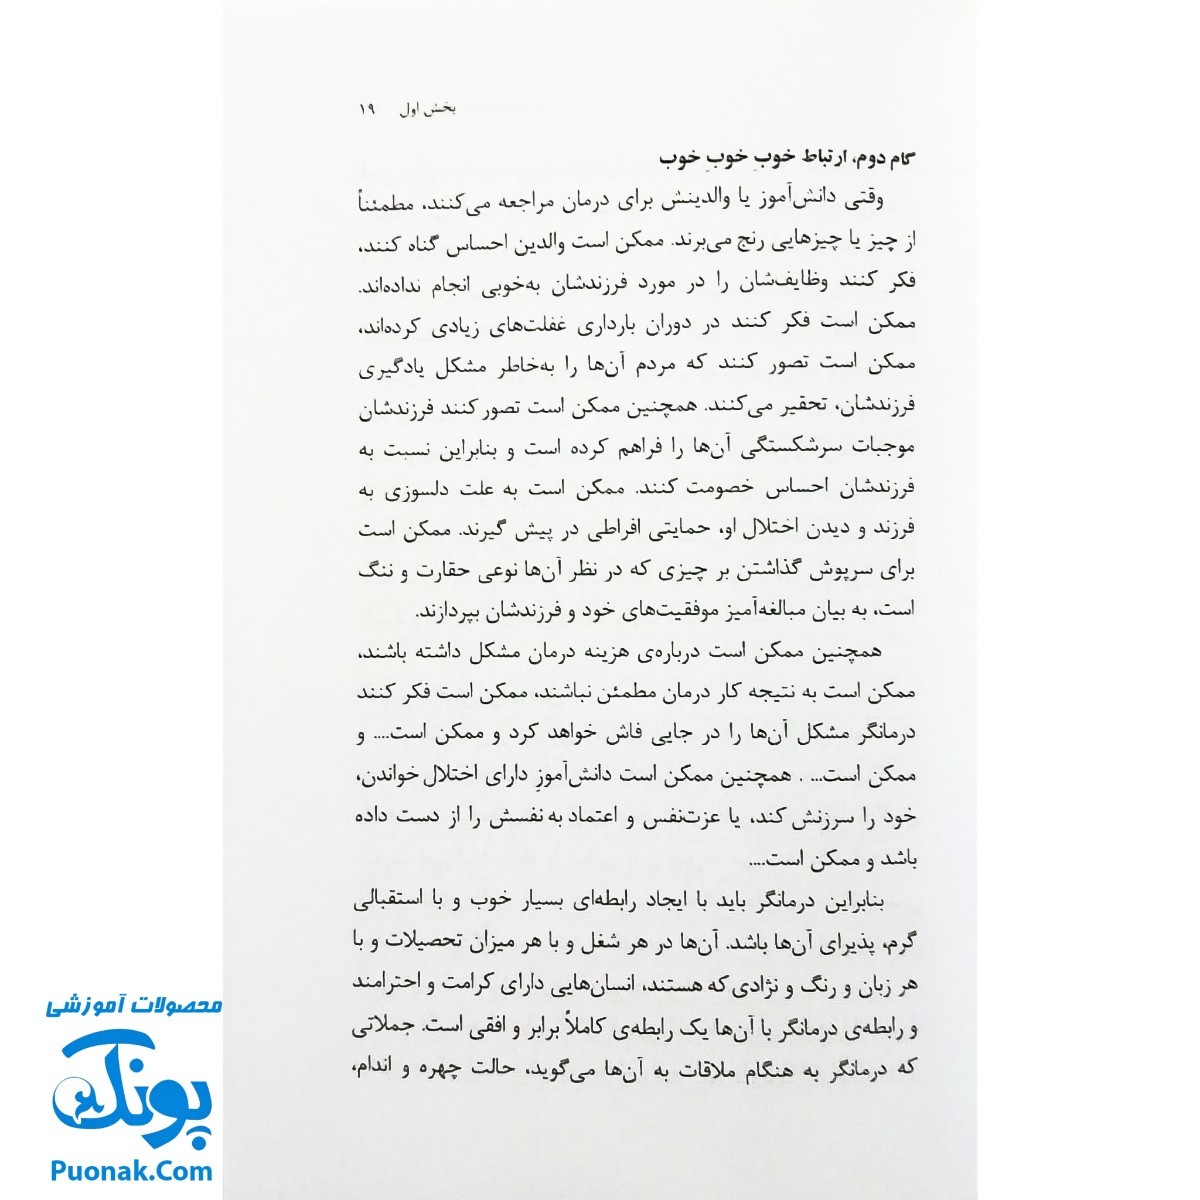 بخش اول ۱۹
گام دوم، ارتباط خوبِ خوبِ خوب
وقتی دانش‌آموز یا والدینش برای درمان مراجعه می‌کنند، مطمئناً
از چیز یا چیزهایی رنج می‌برند. ممکن است والدین احساس گناه کنند،
فکر کنند وظایف‌شان را در مورد فرزندشان به‌خوبی انجام نداده‌اند.
ممکن است فکر کنند در دوران بارداری غفلت‌های زیادی کرده‌اند،
ممکن است تصور کنند که مردم آن‌ها را به‌خاطر مشکل یادگیری
فرزندشان، تحقیر می‌کنند. همچنین ممکن است تصور کنند فرزندشان
موجبات سرشکستگی آن‌ها را فراهم کرده است و بنابراین نسبت به
فرزندشان احساس خصومت کنند. ممکن است به علت دلسوزی به
فرزند و دیدن اختلال او، حمایتی افراطی در پیش گیرند. ممکن است
برای سرپوش گذاشتن بر چیزی که در نظر آن‌ها نوعی حقارت و ننگ
است، به بیان مبالغه‌آمیز موفقیت‌های خود و فرزندشان بپردازند.
همچنین ممکن است درباره‌ی هزینه درمان مشکل داشته باشند،
ممکن است به نتیجه کار درمان مطمئن نباشند، ممکن است فکر کنند
درمانگر مشکل آن‌ها را در جایی فاش خواهد کرد و ممکن است.... و
ممکن است... . همچنین ممکن است دانش‌آموزِ دارای اختلال خواندن،
خود را سرزنش کند، یا عزت‌نفس و اعتماد به نفسش را از دست داده
باشد و ممکن است....
بنابراین درمانگر باید با ایجاد رابطه‌ای بسیار خوب و با استقبالی
گرم، پذیرای آن‌ها باشد. آن‌ها در هر شغل و با هر میزان تحصیلات و با
هر زبان و رنگ و نژادی که هستند، انسان‌هایی دارای کرامت و احترامند
و رابطه‌ی درمانگر با آن‌ها یک رابطه‌ی کاملاً برابر و افقی است. جملاتی
که درمانگر به هنگام ملاقات به آن‌ها می‌گوید، حالت چهره و اندام،
محصولات آموزشی
پونک
Puonak.Com